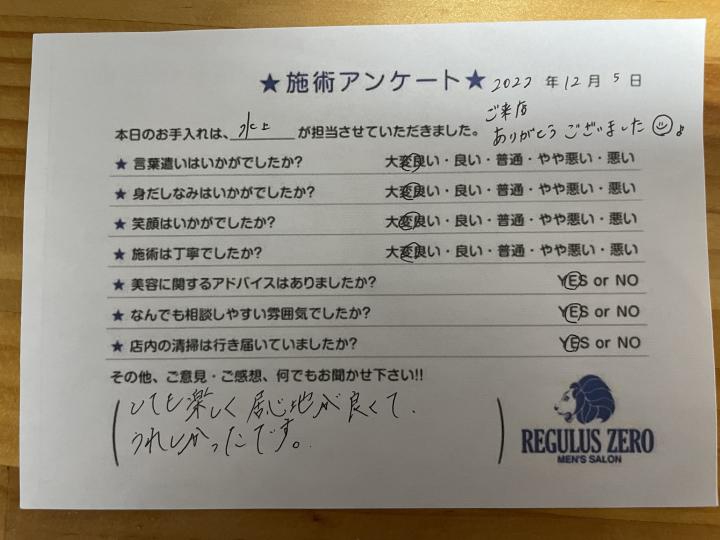 ★施術アンケート★ 2022年12月5日
ご来店
ありがとうございました
本日のお手入れは、水上が担当させていただきました。
★言葉遣いはいかがでしたか? 大変良い・良い・普通・やや悪い・悪い
★身だしなみはいかがでしたか? 大変良い・良い・普通・やや悪い・悪い
★笑顔はいかがでしたか? 大変良い・良い・普通・やや悪い・悪い
★施術は丁寧でしたか? 大変良い・良い・普通・やや悪い・悪い
★美容に関するアドバイスはありましたか? YES or NO
★なんでも相談しやすい雰囲気でしたか? YES or NO
★店内の清掃は行き届いていましたか? YES or NO
その他、ご意見・ご感想、何でもお聞かせ下さい!!
とても楽しく居心地が良くて、
うれしかったです。
REGULUS ZERO
MEN'S SALON